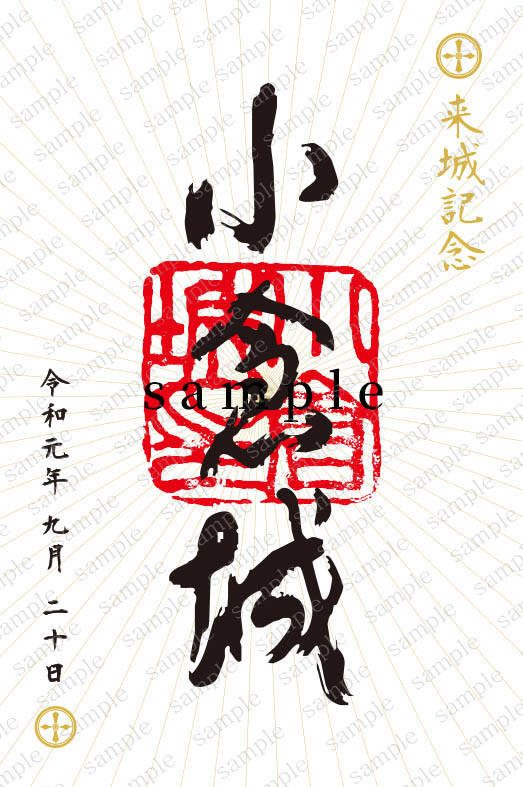 来城記念
小倉城
sample
令和元年 九月 二十日